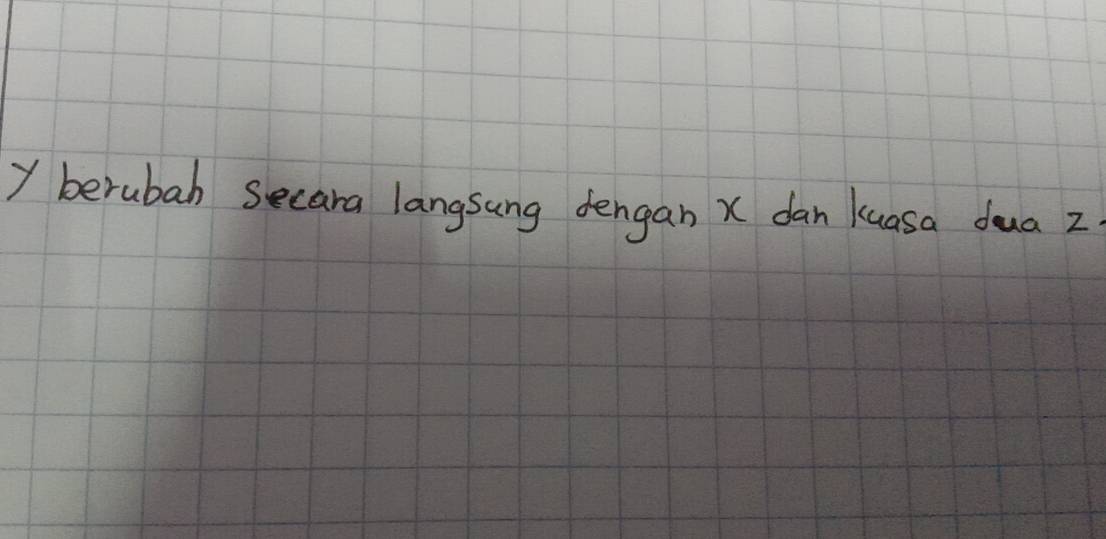 y berubah secara langsung dengan x dan kuasa dua z.